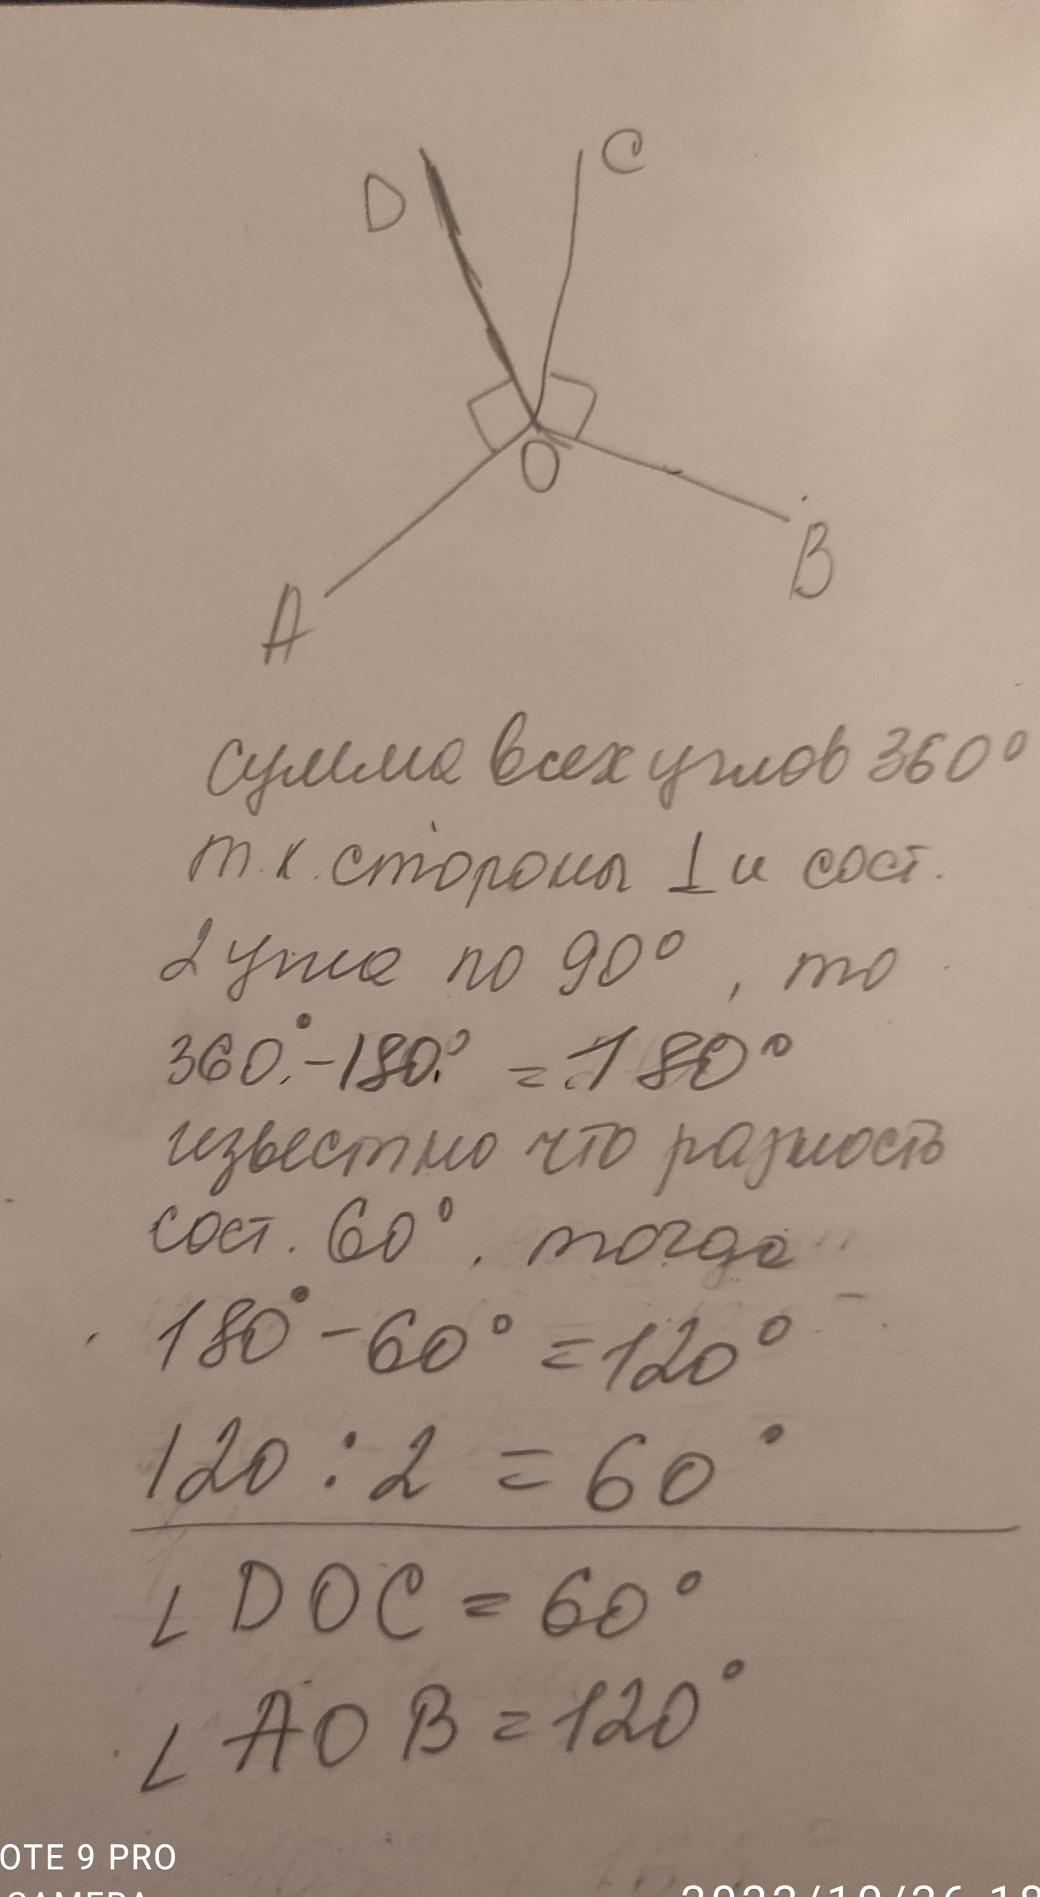 D
C
O
A
B
сумма всех углов 360°
т.к. стороны ⊥ и сост.
2 угла по 90°, то
360° - 180° = 180°
известно что разность
сост. 60°. тогда
180° - 60° = 120°
120 : 2 = 60°
∠ DOC = 60°
∠ AOB = 120°
OTE 9 PRO
CAMERA